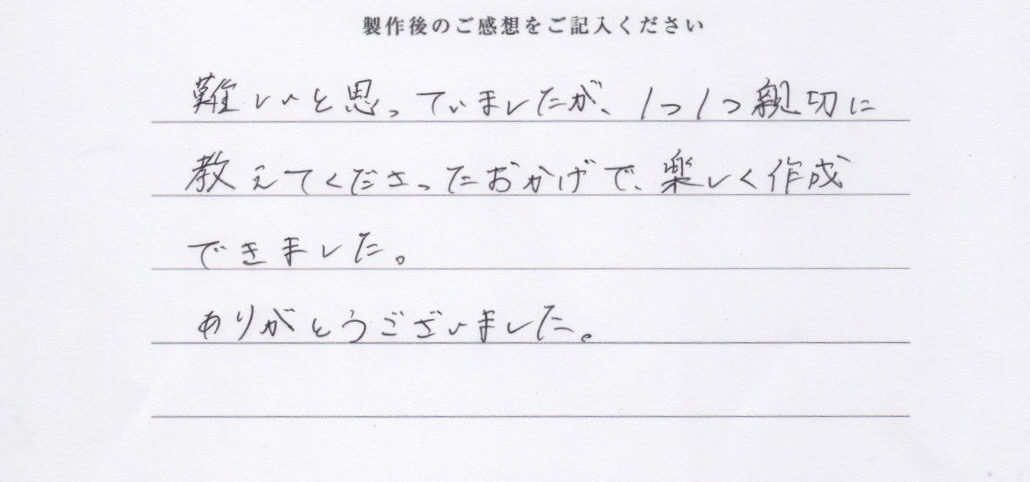 製作後のご感想をご記入ください
難しいと思っていましたが、1つ1つ親切に
教えてくださったおかげで、楽しく作成
できました。
ありがとうございました。